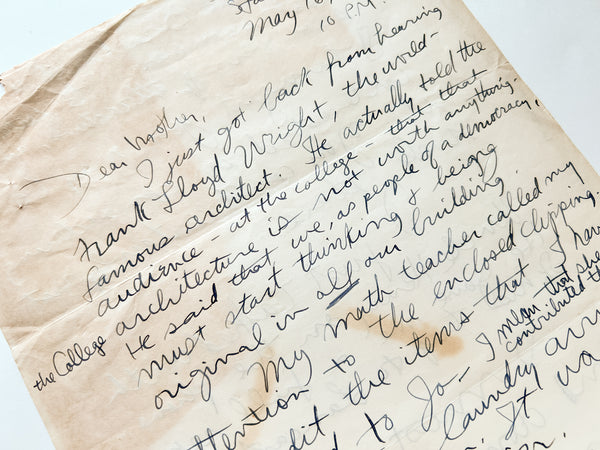 May
10 P.M.
Dear Mother,
I just got back from hearing
Frank Lloyd Wright, the world-
famous architect. He actually told the
audience - at the college - that that
the College architecture is not worth anything.
He said that we, as people of a democracy,
must start thinking & being
original in all our building.
My math teacher called my
attention to the enclosed clipping.
dit the items that I have
d to Jo - I mean that she
contributed th
laundry arr
. It wa